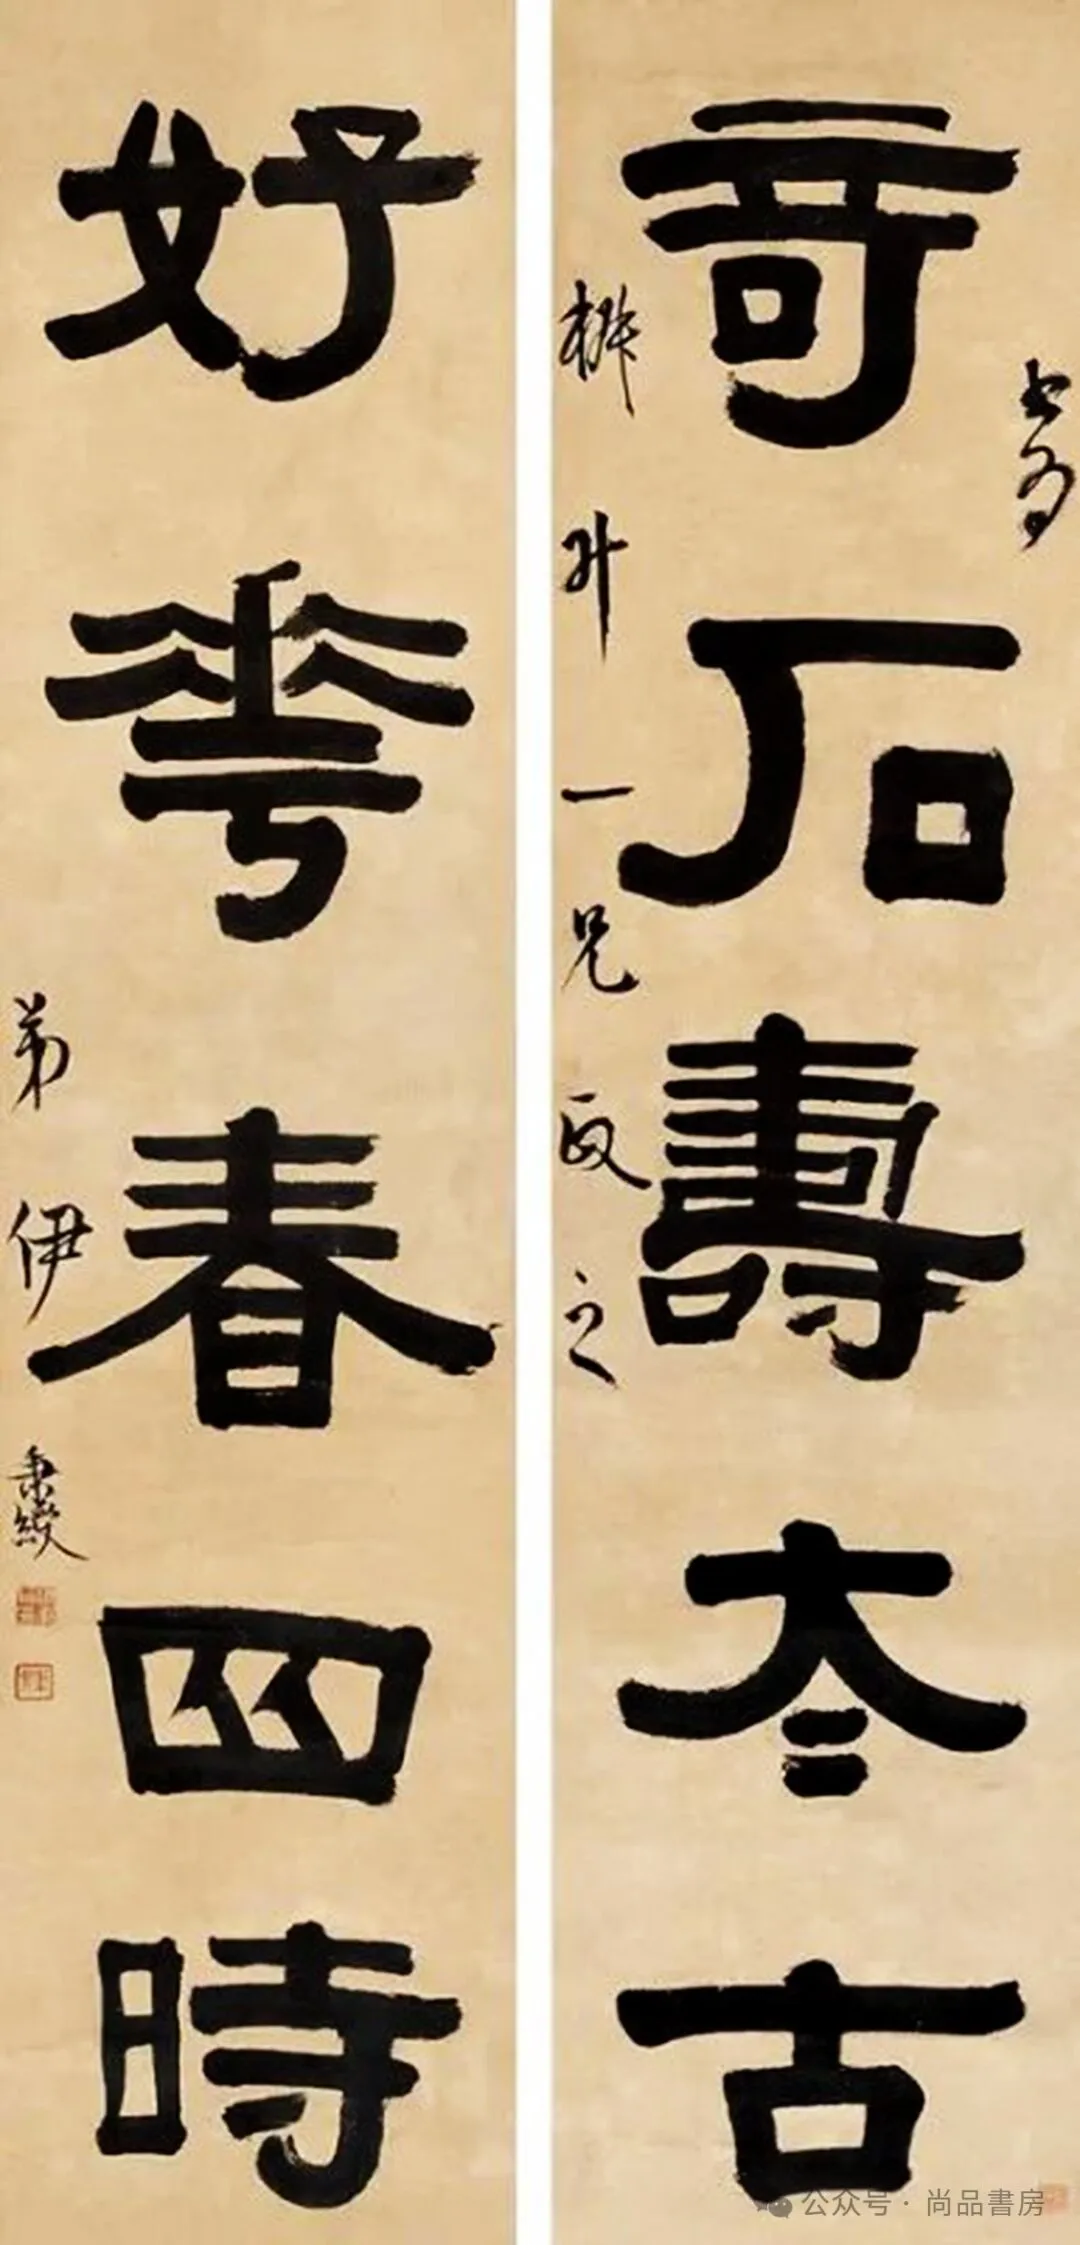 奇石壽太古
書為
椒升一兄政之
好華春四時
弟伊秉綬
公众号·尚品書房